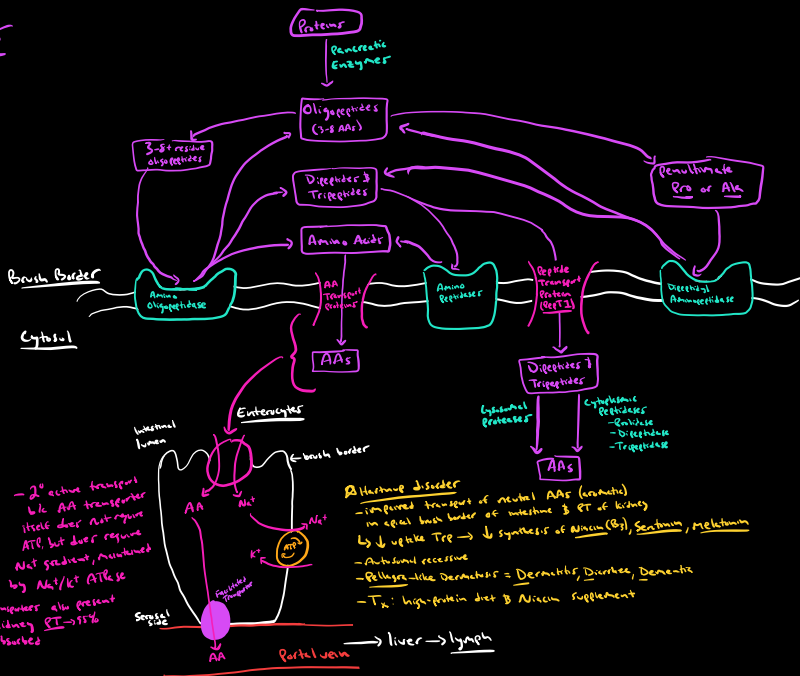 Proteins
Pancreatic
Enzymes
Oligopeptides
(3-8 AAs)
3-8+ residue
oligopeptides
Dipeptides &
Tripeptides
Penultimate
Pro or Ala
Amino Acids
Brush Border
Amino
Oligopeptidase
AA
Transport
Proteins
Amino
Peptidases
Peptide
Transport
Protein
(PepT1)
Dipeptidyl
Aminopeptidase
Cytosol
AAs
Dipeptides &
Tripeptides
Lysosomal
proteases
Cytoplasmic
Peptidases
- Prolidase
- Dipeptidase
- Tripeptidase
AAs
Enterocytes
Intestinal
lumen
brush border
AA
Na+
Na+
K+
ATP
Facilitated
Transporter
Serosal
side
AA
Portal vein
→ liver → lymph
- 2° active transport
b/c AA transporter
itself does not require
ATP, but does require
Na+ gradient, maintained
by Na+/K+ ATPase
also present
PT → 95%
Hartnup disorder
- impaired transport of neutral AAs (aromatic)
in apical brush border of intestine & PT of kidney
↳ ↓ uptake Trp → ↓ synthesis of Niacin (B3), Serotonin, Melatonin
- Autosomal recessive
- Pellagra-like Dermatosis = Dermatitis, Diarrhea, Dementia
- Tx: high-protein diet & Niacin supplement